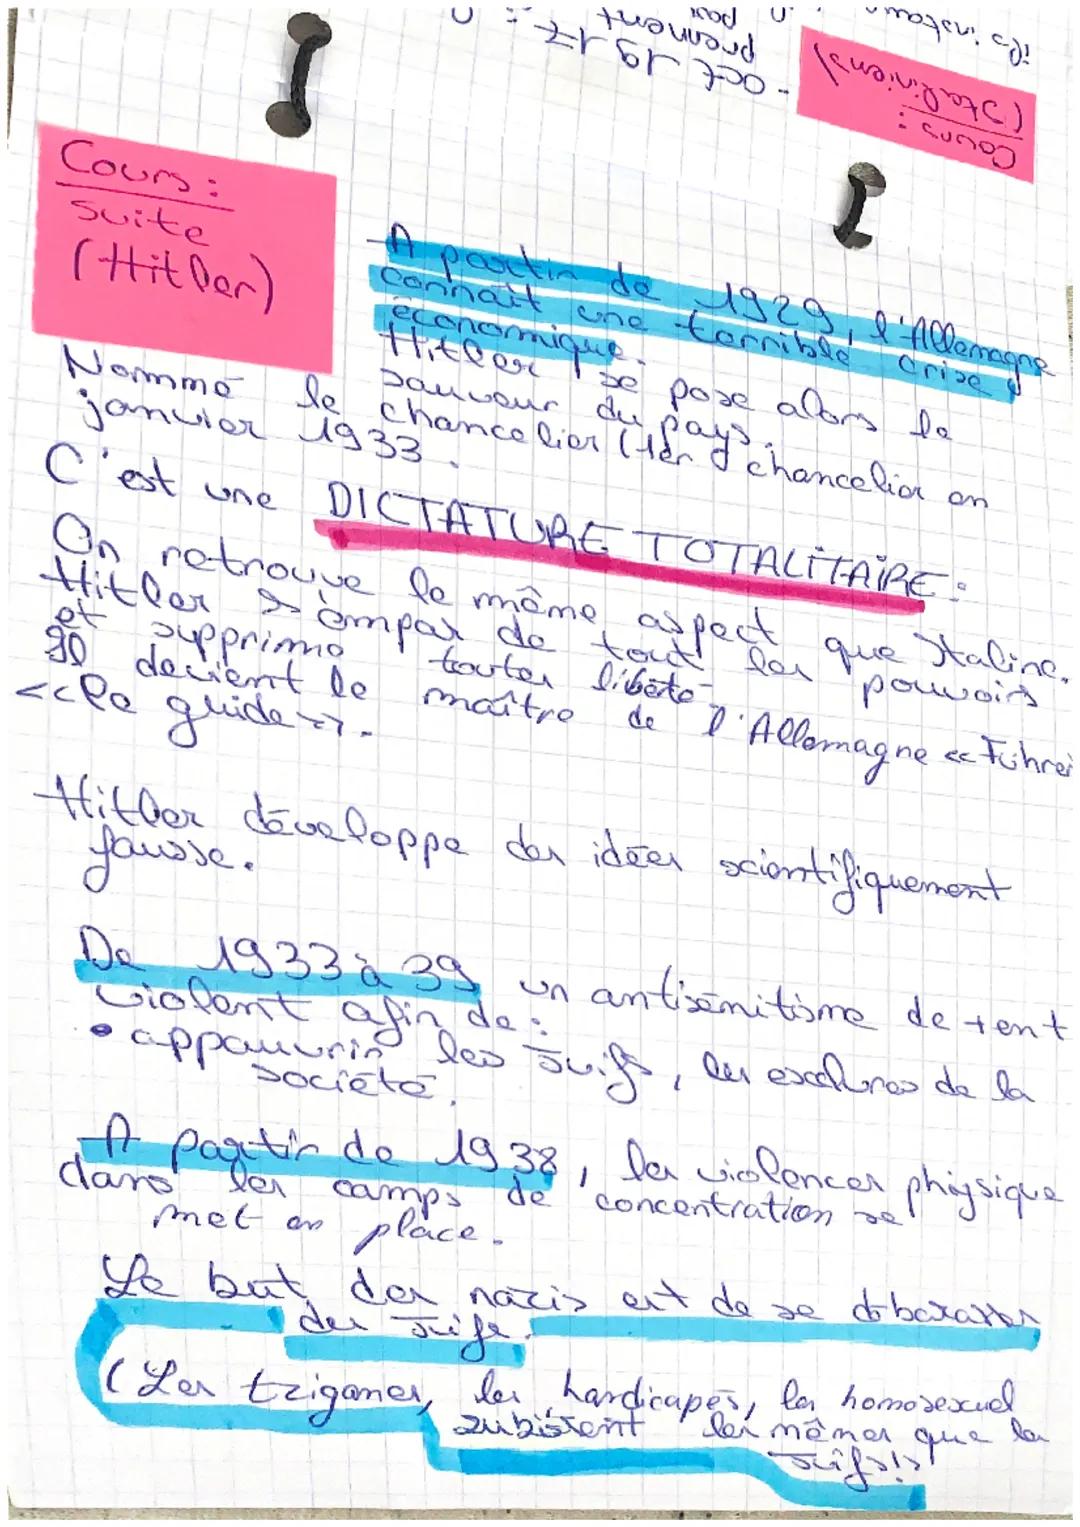 ils instaur
prennent pou
- Oct 1917 :
Cours :
(Staliniens)
Cours :
suite
(Hitler)
A partir de 1929, l'Allemagne
connaît une terrible crise
économique.
Hitler se pose alors le
sauveur du pays.
Nommé le chancelier (1er chancelier en
janvier 1933.
C'est une DICTATURE TOTALITAIRE :
On retrouve le même aspect que Staline.
Hitler s'empar de tout les pouvoirs
et supprime toutes libéte.
Il devient le maître de l'Allemagne << Führer
<<le guide>>.
Hitler développe des idées scientifiquement
fausse.
De 1933 à 39 un antisémitisme de tent
violent afin de :
• appauvrir les Juifs, les exclures de la
société.
A partir de 1938, les violences phigsique
dans les camps de concentration se
met en place.
Le but des nazis est de se débarasser
des Juifs.
(Les tziganes, les handicapés, les homosexuel
subissent les mêmes que les
Juifs!)